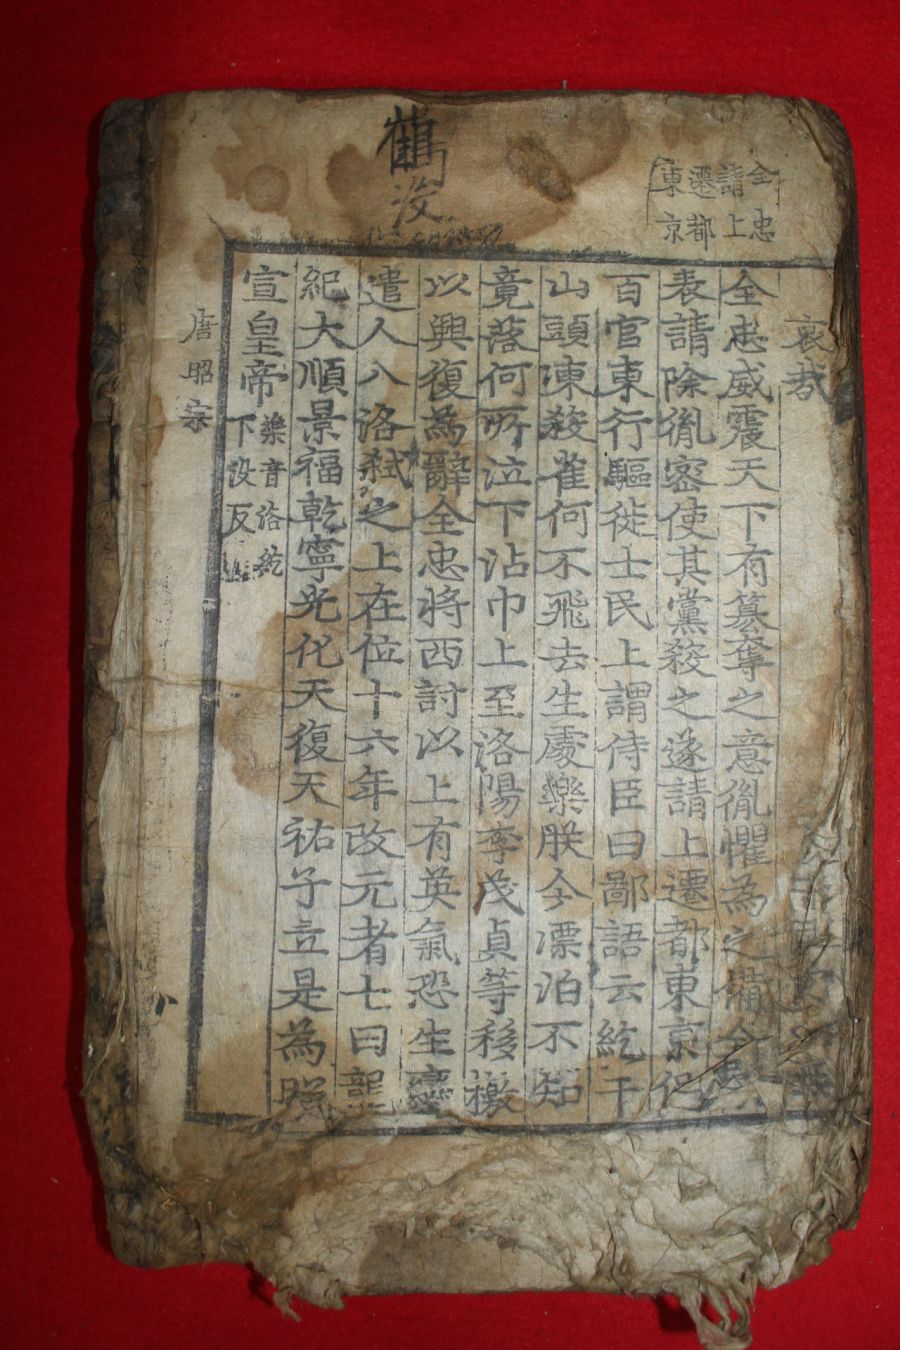 全忠
請上
遷都
東京
哀哉
全忠威震天下有篡奪之意胤懼為之備全忠
表請除胤密使其黨殺之遂請上遷都東京促
百官東行驅徙士民上謂侍臣曰鄙語云紇干
山頭凍殺雀何不飛去生處樂朕今漂泊不知
竟落何所泣下沾巾上至洛陽李茂貞等移檄
以興復為辭全忠將西討以上有英氣恐生變
遣人入洛弒之上在位十六年改元者七曰龍
紀大順景福乾寧光化天復天祐子立是為昭
宣皇帝 樂音洛紇
下没反
唐昭宗